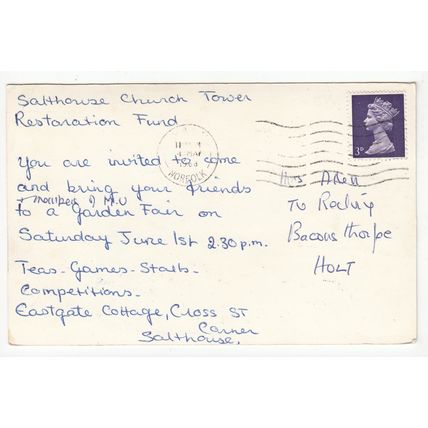 Salthouse Church Tower
Restoration Fund
You are invited to come
and bring your friends
+ members of M.U
to a Garden Fair on
Saturday June 1st 2.30 p.m.
Teas - Games - Stalls -
Competitions -
Eastgate Cottage, Cross St
Corner
Salthouse.
NORFOLK
3D
Mrs Allen
The Rectory
Baconsthorpe
HOLT